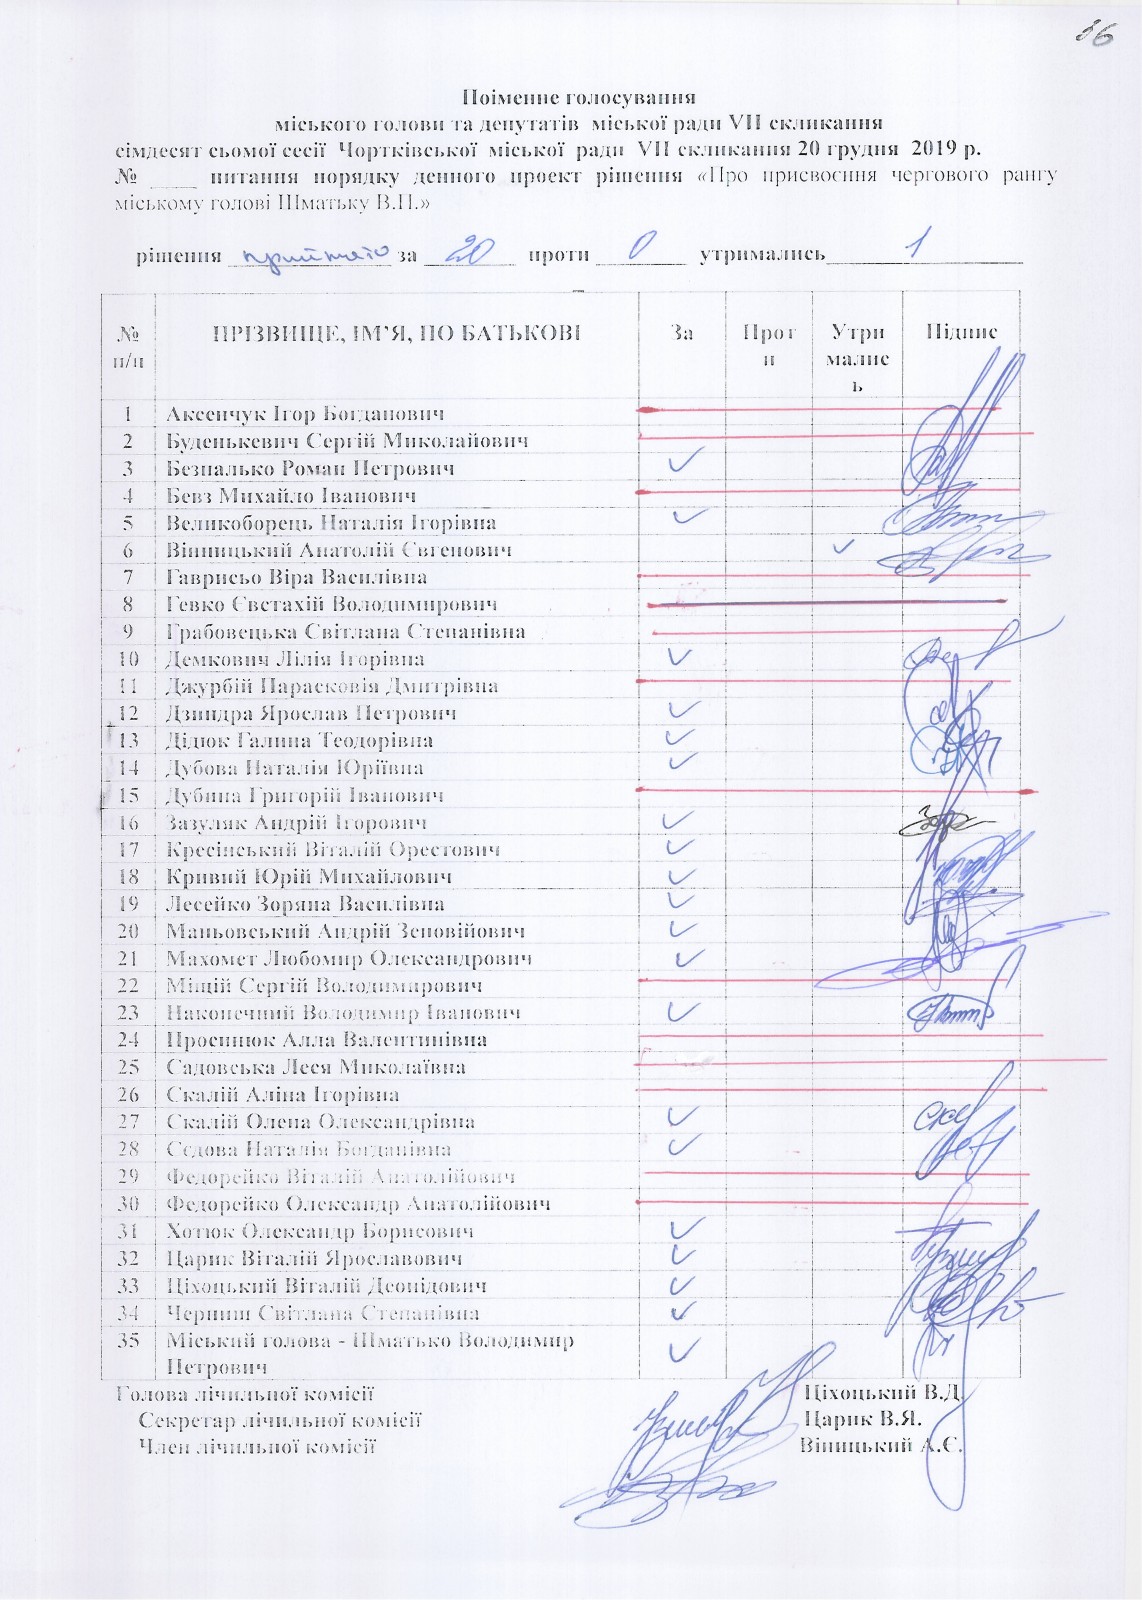 36
Поіменне голосування
міського голови та депутатів міської ради VII скликання
сімдесят сьомої сесії Чортківської міської ради VII скликання 20 грудня 2019 р.
№ ____ питання порядку денного проект рішення «Про присвоєння чергового рангу
міському голові Шматьку В.П.»
рішення прийнято за 20 проти 0 утримались 1
№ п/п ПРІЗВИЩЕ, ІМ’Я, ПО БАТЬКОВІ За Проти Утрималис ь Підпис
1 Аксенчук Ігор Богданович
2 Буденькевич Сергій Миколайович
3 Безпалько Роман Петрович ✓
4 Бевз Михайло Іванович
5 Великоборець Наталія Ігорівна ✓
6 Вінницький Анатолій Євгенович ✓
7 Гаврисьо Віра Василівна
8 Гевко Євстахій Володимирович
9 Грабовецька Світлана Степанівна
10 Демкович Лілія Ігорівна ✓
11 Джурбій Парасковія Дмитрівна
12 Дзиндра Ярослав Петрович ✓
13 Дідюк Галина Теодорівна ✓
14 Дубова Наталія Юріївна ✓
15 Дубина Григорій Іванович
16 Зазуляк Андрій Ігорович ✓
17 Кресінський Віталій Орестович ✓
18 Кривий Юрій Михайлович ✓
19 Лесейко Зоряна Василівна ✓
20 Маньовський Андрій Зеновійович ✓
21 Махомет Любомир Олександрович ✓
22 Міщій Сергій Володимирович
23 Наконечний Володимир Іванович ✓
24 Просинюк Алла Валентинівна
25 Садовська Леся Миколаївна
26 Скалій Аліна Ігорівна
27 Скалій Олена Олександрівна ✓
28 Сєдова Наталія Богданівна ✓
29 Федорейко Віталій Анатолійович
30 Федорейко Олександр Анатолійович
31 Хотюк Олександр Борисович ✓
32 Царик Віталій Ярославович ✓
33 Ціхоцький Віталій Деонідович ✓
34 Черниш Світлана Степанівна ✓
35 Міський голова - Шматько Володимир ✓
Петрович
Голова лічильної комісії Ціхоцький В.Д.
Секретар лічильної комісії Царик В.Я.
Член лічильної комісії Віницький А.Є.